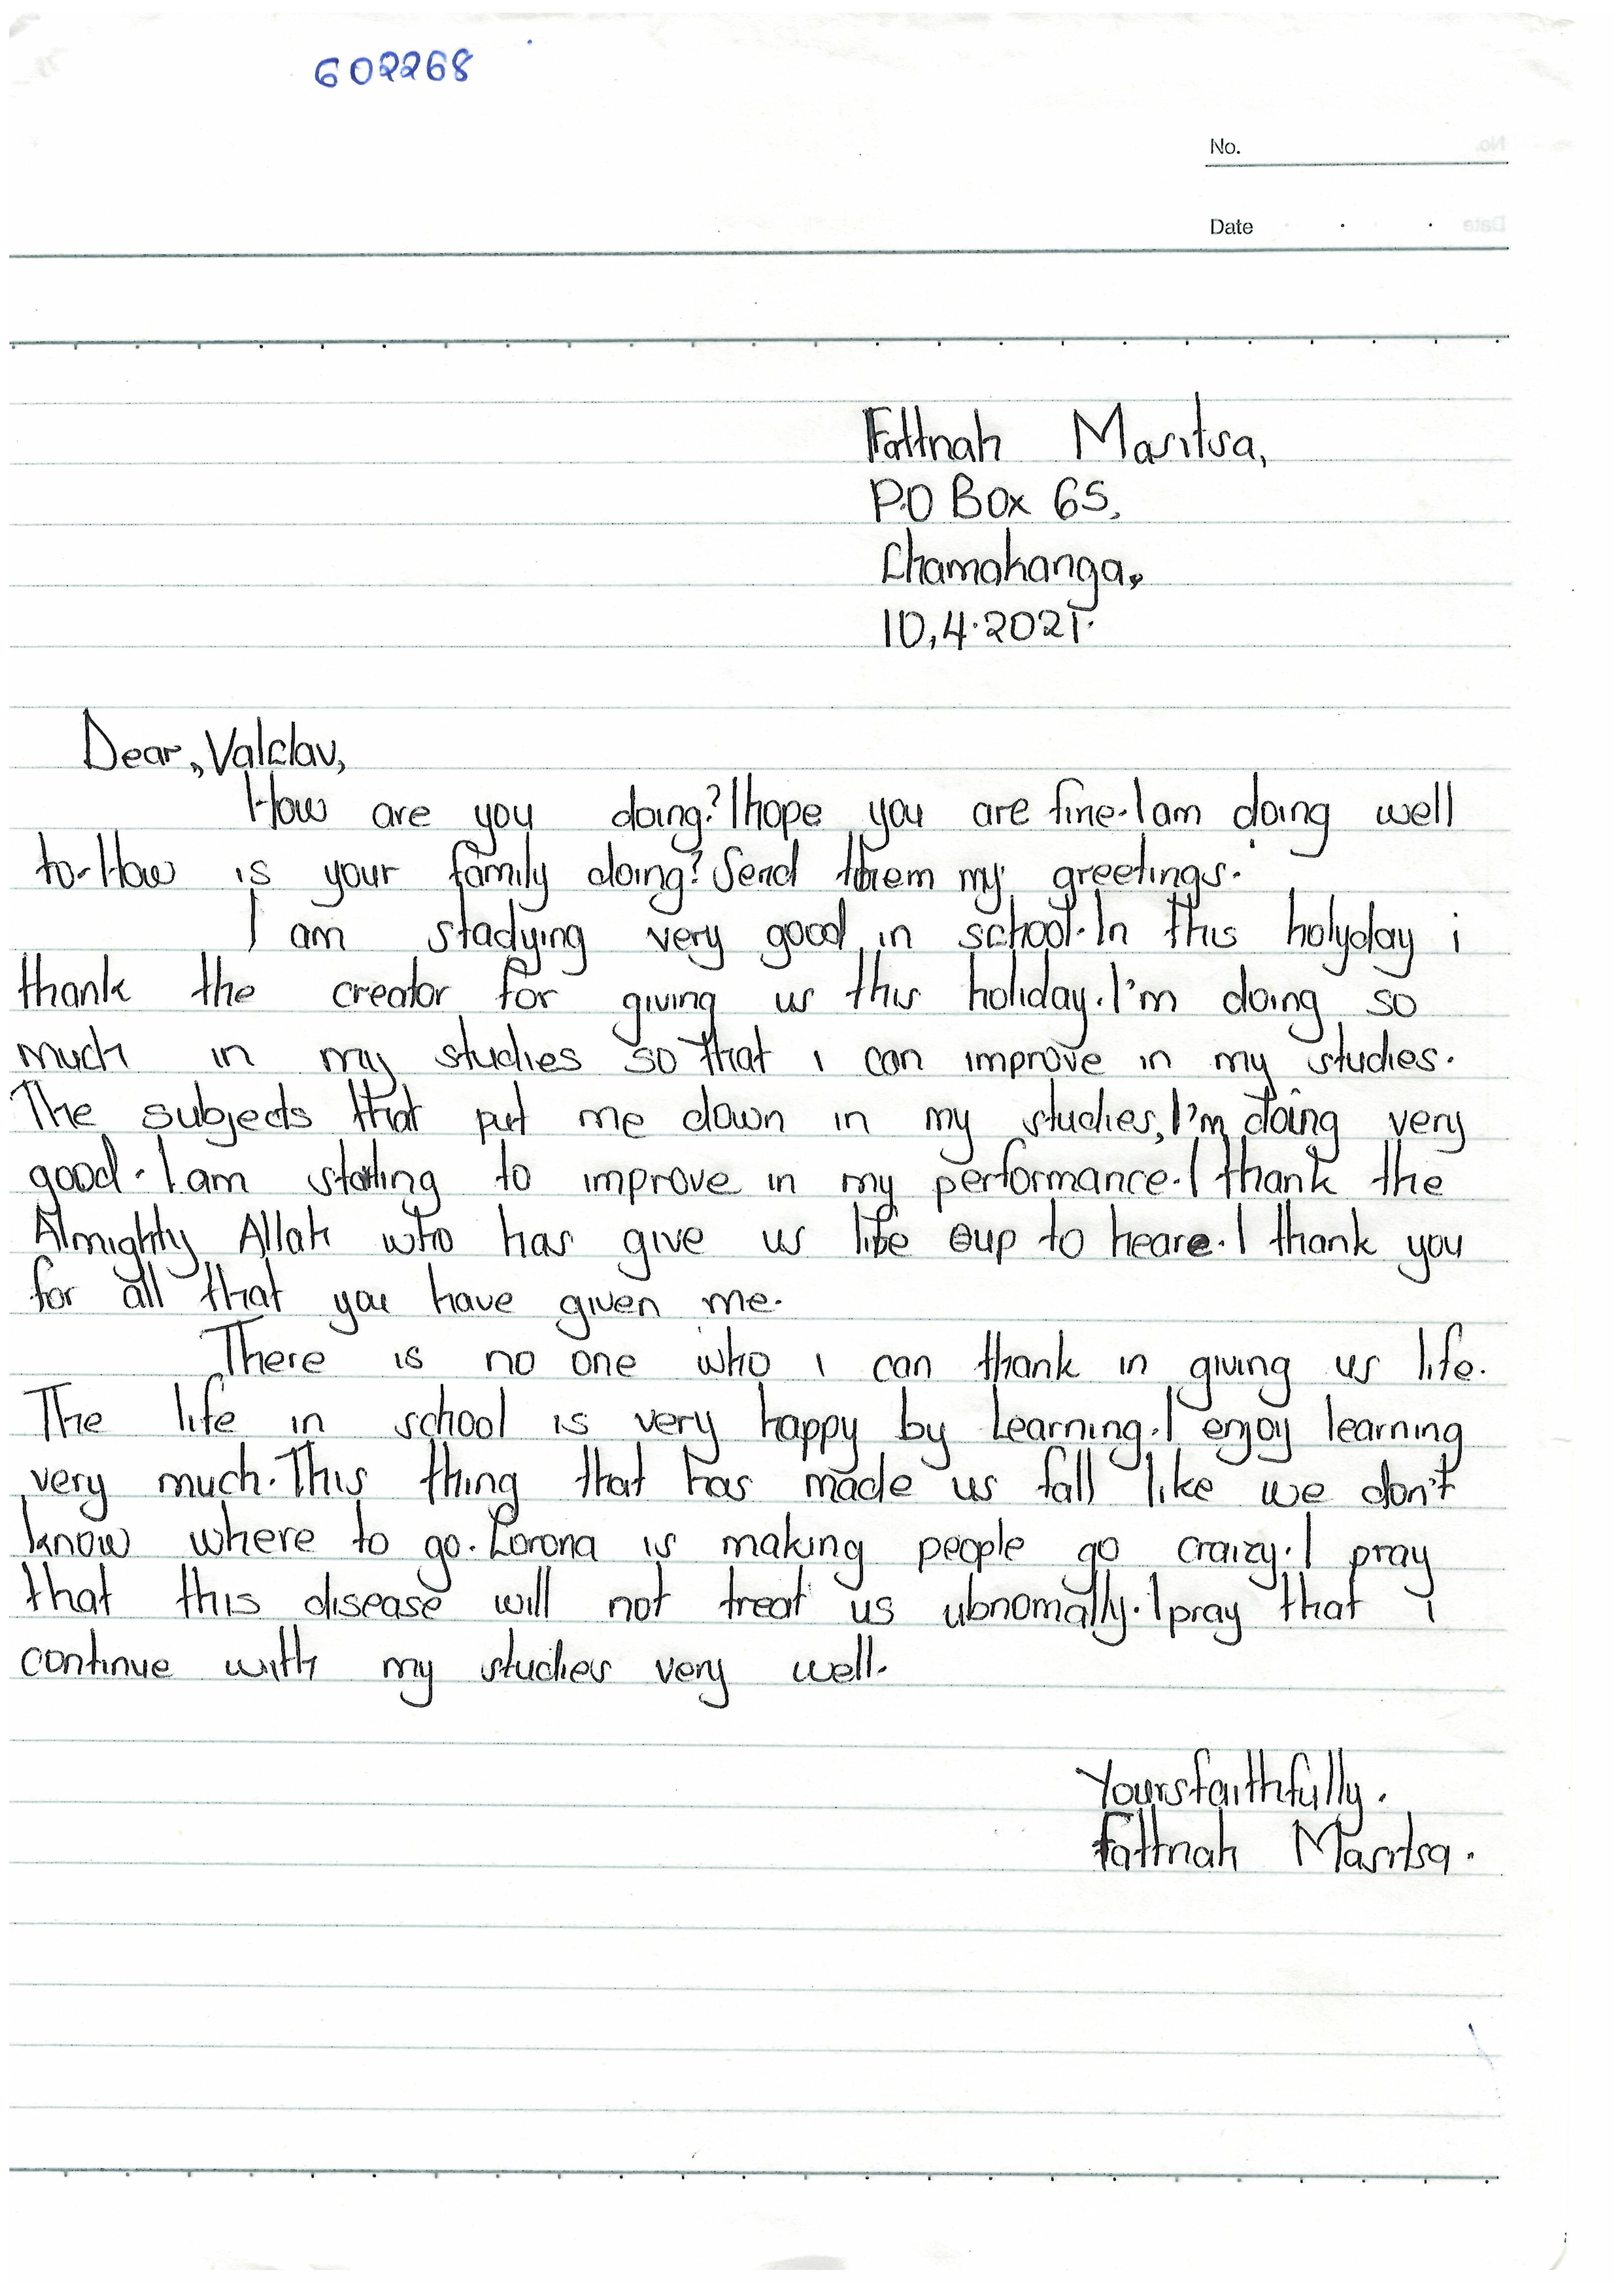 602268
No.
Date
Fattnah Masitsa,
P.O Box 65,
Chamakanga,
10,4.2021.
Dear, Valclav,
How are you doing? I hope you are fine. I am doing well
to. How is your family doing? Send them my greetings.
I am stadying very good in school. In this holyday i
thank the creator for giving us this holiday. I'm doing so
much in my studies so that i can improve in my studies.
The subjects that put me down in my studies, I'm doing very
good. I am stating to improve in my performance. I thank the
Almighty Allah who has give us life up to heare. I thank you
for all that you have given me.
There is no one who i can thank in giving us life.
The life in school is very happy by Learning. I enjoy learning
very much. This thing that has made us fall like we don't
know where to go. Corona is making people go craizy. I pray
that this disease will not treat us ubnomally. I pray that i
continue with my studies very well.
Yours faithfully.
Fattnah Masitsa.